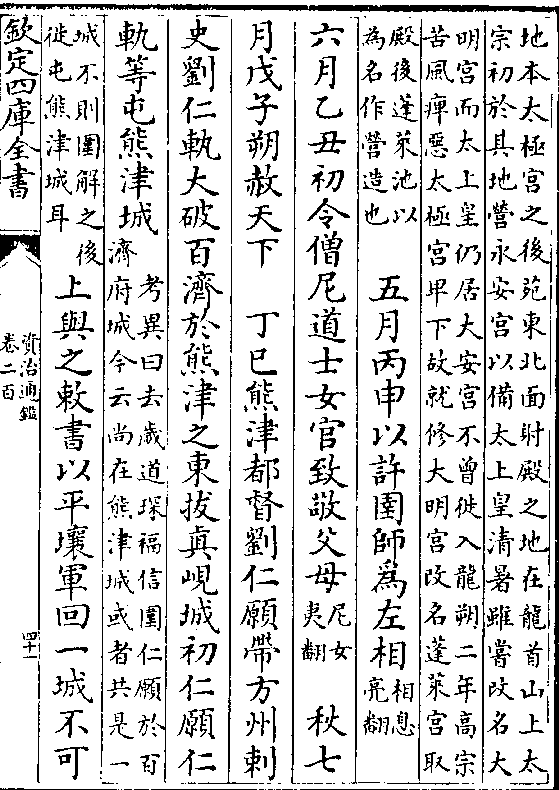 地本大極宮之後苑東北面射殿之地在龍首山上太
宗初於其地營永安宮以備太上皇清暑雖嘗改名大
明宮而太上皇仍居大安宮不曾徙入龍朔二年高宗
苦風痺惡太極宮卑下故就修大明宮改名蓬萊宮取
殿後蓬萊池以
為名作營造也
五月丙申以許圉師爲左相
相息
亮翻
六月乙丑初令僧尼道士女官致敬父母
尼女
夷翻
秋七
月戊子朔赦天下　丁巳熊津都督劉仁願帶方州刺
史劉仁軌大破百濟於熊津之東拔真峴城初仁願仁
軌等屯熊津城
考異曰去歲道琛福信圍仁願於百
濟府城今云尚在熊津城或者共是一
城不則圍解之後
徙屯熊津城耳
上與之敕書以平壤軍回一城不可
欽定四庫全書
資治通鑑
卷二百
四十一